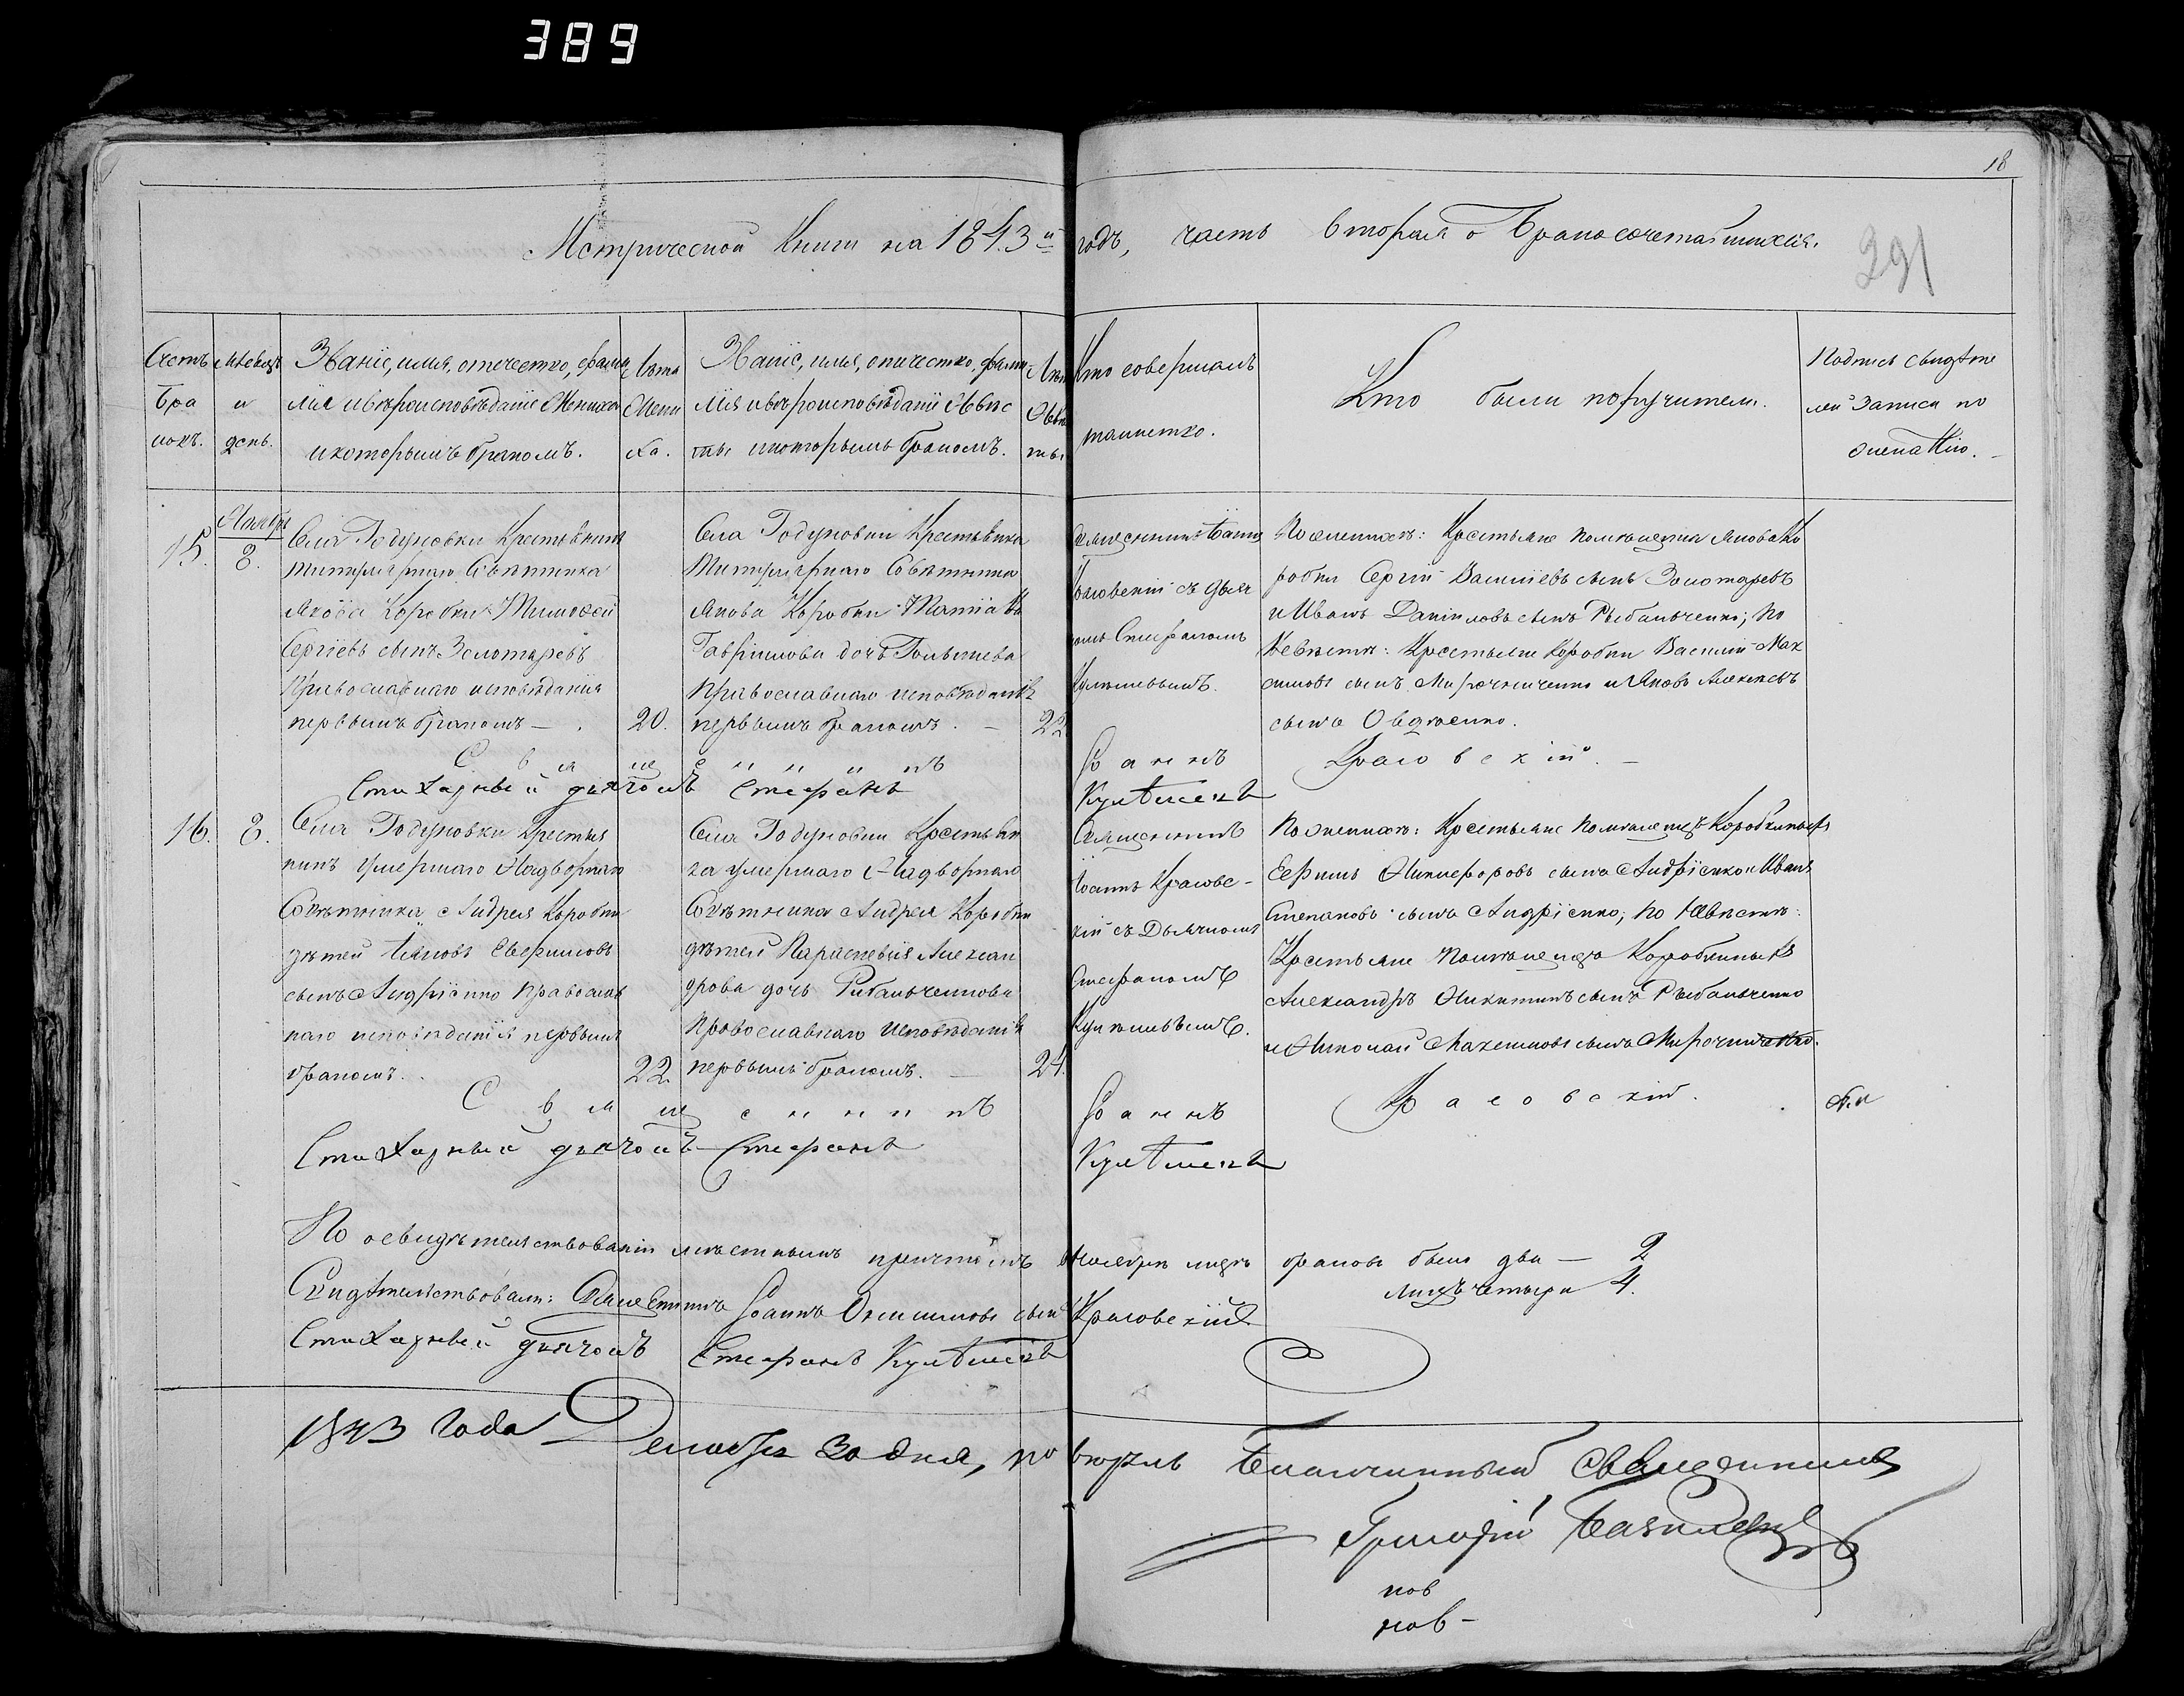 389
18
291
Метрической Книги на 1843й годъ, часть вторая о Бракосочетавшихся.
Счетъ
Бра
ковъ.
Мѣсяцъ
и
день.
Званіе, имя, отечество, фами
лія и вѣроисповѣданіе Жениха
и которымъ бракомъ.
Лѣта
Жени
ха.
Званіе, имя, отечество, фами
лія и вѣроисповѣданіе Невѣс
ты и которымъ бракомъ.
Лѣта
Невѣс
ты.
Кто совершалъ
таинство.
Кто были поручители.
Подпись свидѣте
лей записи по
желанію.
15.
Ноябрь
8.
Села Годуновки Крестьянинъ
Титулярнаго Совѣтника
Якова Коробки Тимофей
Сергіевъ сынъ Золотаревъ
Православнаго исповѣданія
первымъ бракомъ
20.
Села Годуновки Крестьянка
Титулярнаго Совѣтника
Якова Коробки
Гавріилова дочь
Православнаго исповѣданія
первымъ бракомъ.
22
Священникъ Іоаннъ
Краговскій съ Дьяч
комъ Стефаномъ
По женихѣ: Крестьяне помѣщика Якова Ко
робки Сергій Василіевъ сынъ Золотаревъ
и Иванъ Даніиловъ сынъ Рыбальченко; по
Невѣстѣ: Крестьяне Коробки Василій Мак
симовъ сынъ Мирочниченко и Яковъ Алексѣевъ
сынъ Овдіенко.
Священникъ Іоаннъ Краговскій.
Стихарный дьячокъ Стефанъ
16.
8.
Села Годуновки Крестья
нинъ умершаго Надворнаго
Совѣтника Андрея Коробки
дѣтей Іаковъ Евфимовъ
сынъ Андріенко Православ
наго исповѣданія первымъ
бракомъ.
22
Села Годуновки Крестьян
ка умершаго Надворнаго
Совѣтника Андрея Коробки
дѣтей Параскевія Алексан
дрова дочь Рибальченкова
Православнаго исповѣданія
первымъ бракомъ.
24.
Священникъ
Іоаннъ Краговс-
кій съ Дьячкомъ
Стефаномъ
По женихѣ: Крестьяне помѣщицъ Коробкиныхъ
Ефимъ Никифоровъ сынъ Андріенко и Иванъ
Степановъ сынъ Андріенко; по Невѣстѣ:
Крестьяне помѣщицъ Коробкиныхъ
Александръ Никитинъ сынъ Рыбальченко
и Николай Максимовъ сынъ Мирочниченко.
Священникъ Іоаннъ Краговскій.
Стихарный дьячокъ Стефанъ
По освидѣтельствованіи мѣстнымъ причтомъ въ Ноябрѣ мцѣ браковъ было два — 2
лицъ четыри 4.
Свидѣтельствовали: Священникъ Іоаннъ сынъ Краговскій
Стихарный дьячокъ Стефанъ
1843 Года Декабря 30 дня, по Благочинный Священникъ
Григорій
нов
нов-